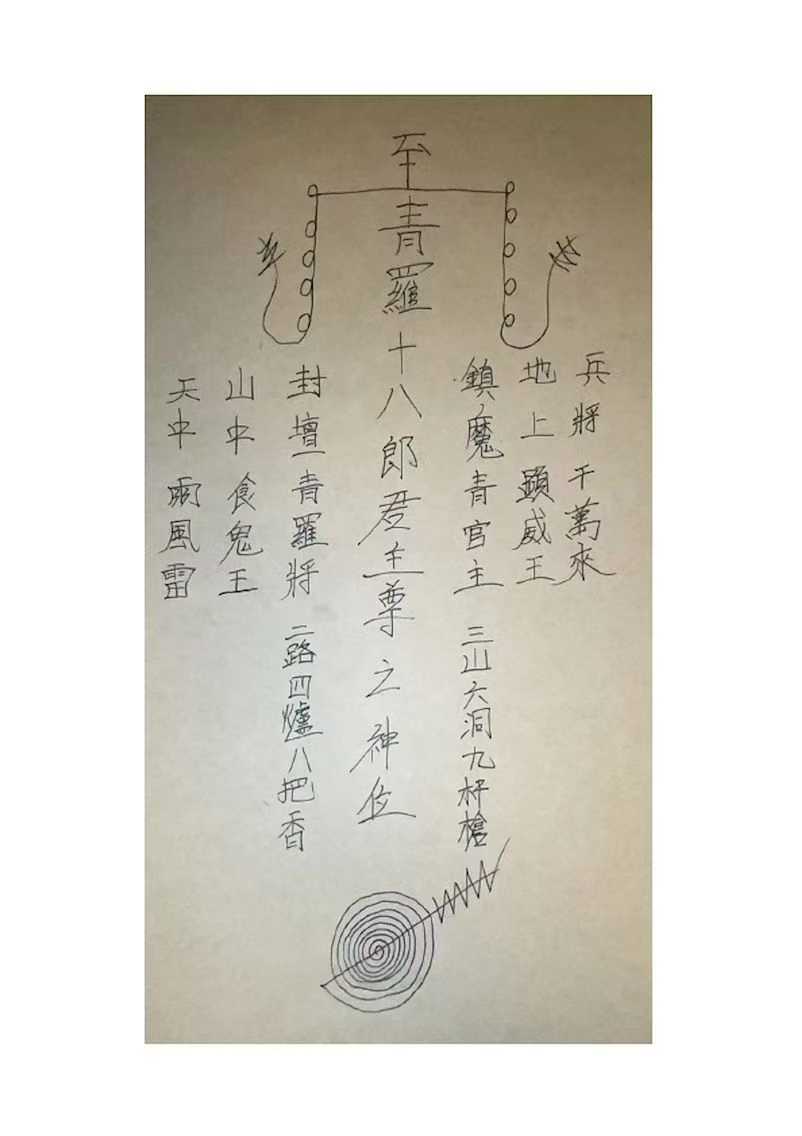 至
兵將千萬來
地上顕威王
鎮魔青官主 三山六洞九杆槍
青羅十八郎君至尊之神位
封壇青羅將 二路四爐八把香
山中食鬼王
天中雨風雷